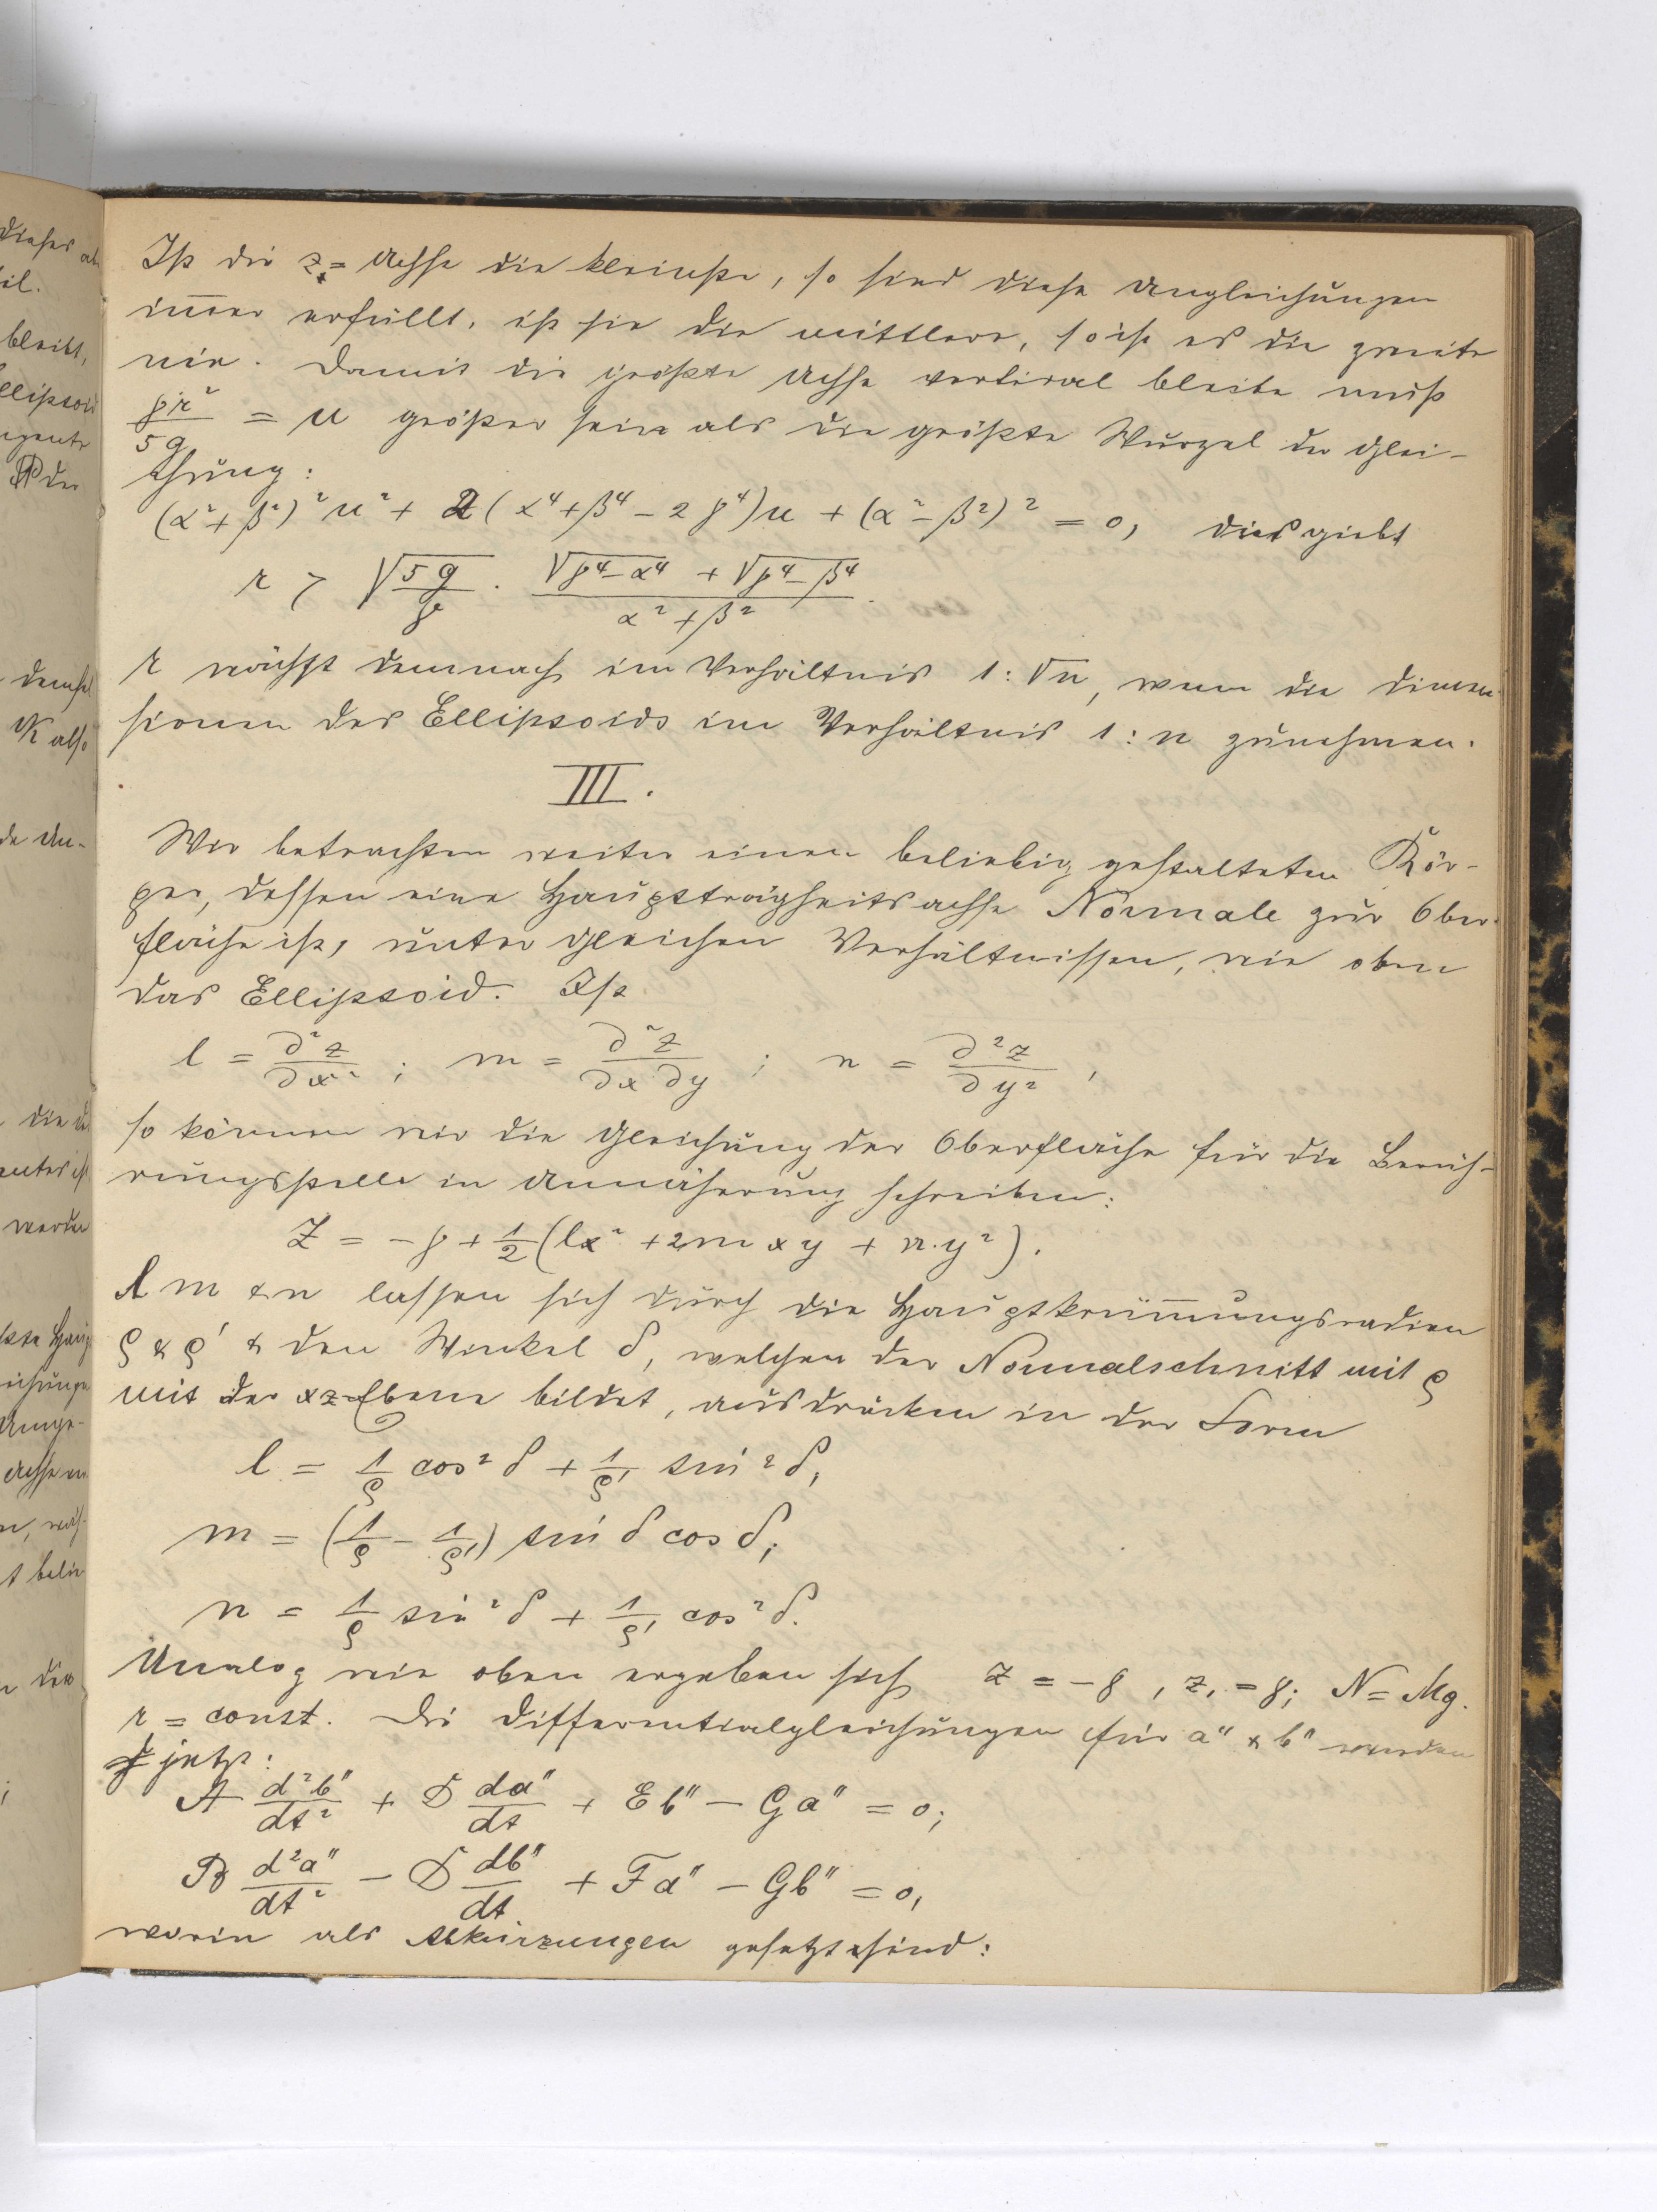 dieses al
eil.
bleibt,
ellipsoid
der
demsel
K also
de Un-
die
unter ist
werden
Unge-
Achse
n, wäh-
t belie
Ist die z₁=Achse die kleinste, so sind diese Ungleichungen
im̅er erfüllt, ist sie die mittlere, so ist es die zweite
nie. Damit die größte Achse vertical bleibe muß
γr²/5g = u größer sein als die größte Wurzel der Glei-
chung:
(α²+β²)²u² + 2(α⁴+β⁴−2γ⁴)u + (α²−β²)² = 0, dies giebt
r > √(5g/γ) · (√(γ⁴−α⁴) + √(γ⁴−β⁴))/(α²+β²).
r wächst demnach im Verhältnis 1:√n, wenn die Dimen-
sionen des Ellipsoids im Verhältnis 1:n zunehmen.
III.
Wir betrachten weiter einen beliebig gestalteten Kör-
per, dessen eine Hauptträgheitsachse Normale zur Ober-
fläche ist, unter gleichen Verhältnissen, wie oben
das Ellipsoid. Ist
l = ∂²z/∂x² ; m = ∂²z/∂x∂y ; n = ∂²z/∂y² ,
so können wir die Gleichung der Oberfläche für die Berüh-
rungsstelle in Annäherung schreiben:
Z = −γ + ½(lx² + 2mxy + n·y²).
l m & n lassen sich durch die Hauptkrüm̅ungsradien
ϱ & ϱ' & den Winkel δ, welchen der Normalschnitt mit ϱ
mit der xz=Ebene bildet, ausdrücken in der Form
l = 1/ϱ cos²δ + 1/ϱ' sin²δ,
m = (1/ϱ − 1/ϱ') sin δ cos δ,
n = 1/ϱ sin²δ + 1/ϱ' cos²δ.
Analog wie oben ergeben sich z = −γ, z₁ = γ; N = Mg.
r = const. Die Differentialgleichungen für a'' & b'' werden
jetzt:
A d²b''/dt² + D da''/dt + Eb'' − Ga'' = 0;
B d²a''/dt² − D db''/dt + Fa'' − Gb'' = 0,
worin als Abkürzungen gesetzt sind: